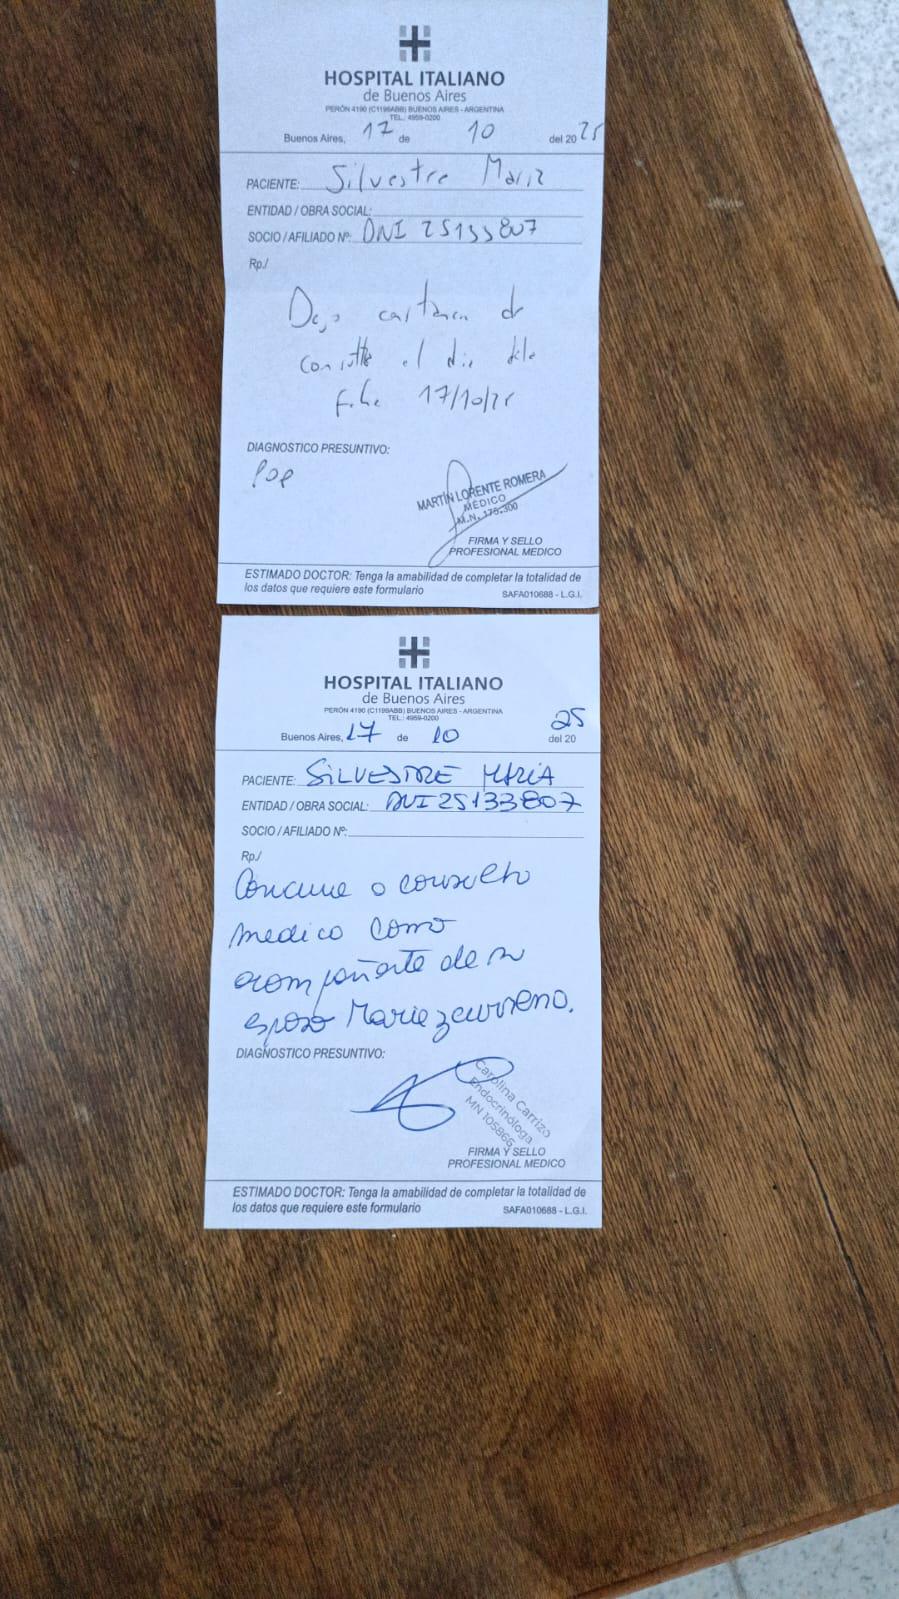 HOSPITAL ITALIANO
de Buenos Aires
PERÓN 4190 (C1199ABB) BUENOS AIRES - ARGENTINA
TEL.: 4959-0200
Buenos Aires, 17 de 10 del 2025
PACIENTE: Silvestre Maria
ENTIDAD / OBRA SOCIAL:
SOCIO / AFILIADO Nº: DNI 25133807
Rp./
Dejo constancia de
consulta el día de la
fecha 17/10/25
DIAGNOSTICO PRESUNTIVO:
POP
MARTÍN LORENTE ROMERA
MÉDICO
M.N. 175.300
FIRMA Y SELLO
PROFESIONAL MEDICO
ESTIMADO DOCTOR: Tenga la amabilidad de completar la totalidad de
los datos que requiere este formulario
SAFA010688 - L.G.I.
HOSPITAL ITALIANO
de Buenos Aires
PERÓN 4190 (C1199ABB) BUENOS AIRES - ARGENTINA
TEL.: 4959-0200
Buenos Aires, 17 de 10 del 20 25
PACIENTE: SILVESTRE MARIA
ENTIDAD / OBRA SOCIAL: DNI 25133807
SOCIO / AFILIADO Nº:
Rp./
Concurre a consulta
medico como
acompañante de su
esposo
DIAGNOSTICO PRESUNTIVO:
Carolina Carrizo
Endocrinóloga
MN 105866
FIRMA Y SELLO
PROFESIONAL MEDICO
ESTIMADO DOCTOR: Tenga la amabilidad de completar la totalidad de
los datos que requiere este formulario
SAFA010688 - L.G.I.